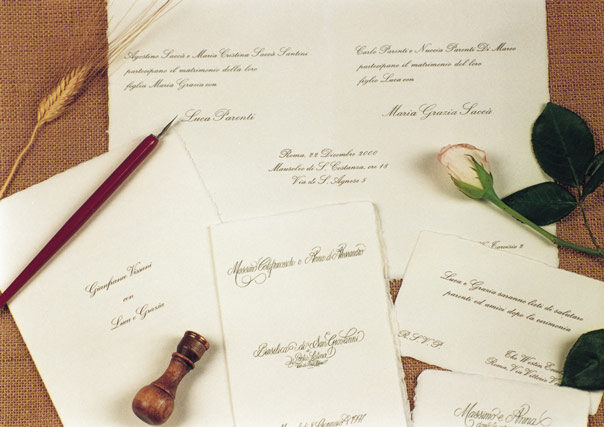 Agostino Saccà e Maria Cristina Saccà Santoni
partecipano il matrimonio della loro
figlia Maria Grazia con
Luca Parenti
Carlo Parenti e Nuccia Parenti Di Marco
partecipano il matrimonio del loro
figlio Luca con
Maria Grazia Saccà
Roma, 22 Dicembre 2000
Mausoleo di S. Costanza, ore 18
Via di S. Agnese 5
Gianfranco Vissani
con
Luca e Grazia
Massimo e Anna
Basilica di San
Luca e Grazia saranno lieti di salutare
parenti ed amici dopo la cerimonia
R.S.V.P.
The Westin
Roma, Via Vittorio
Massimo e Anna